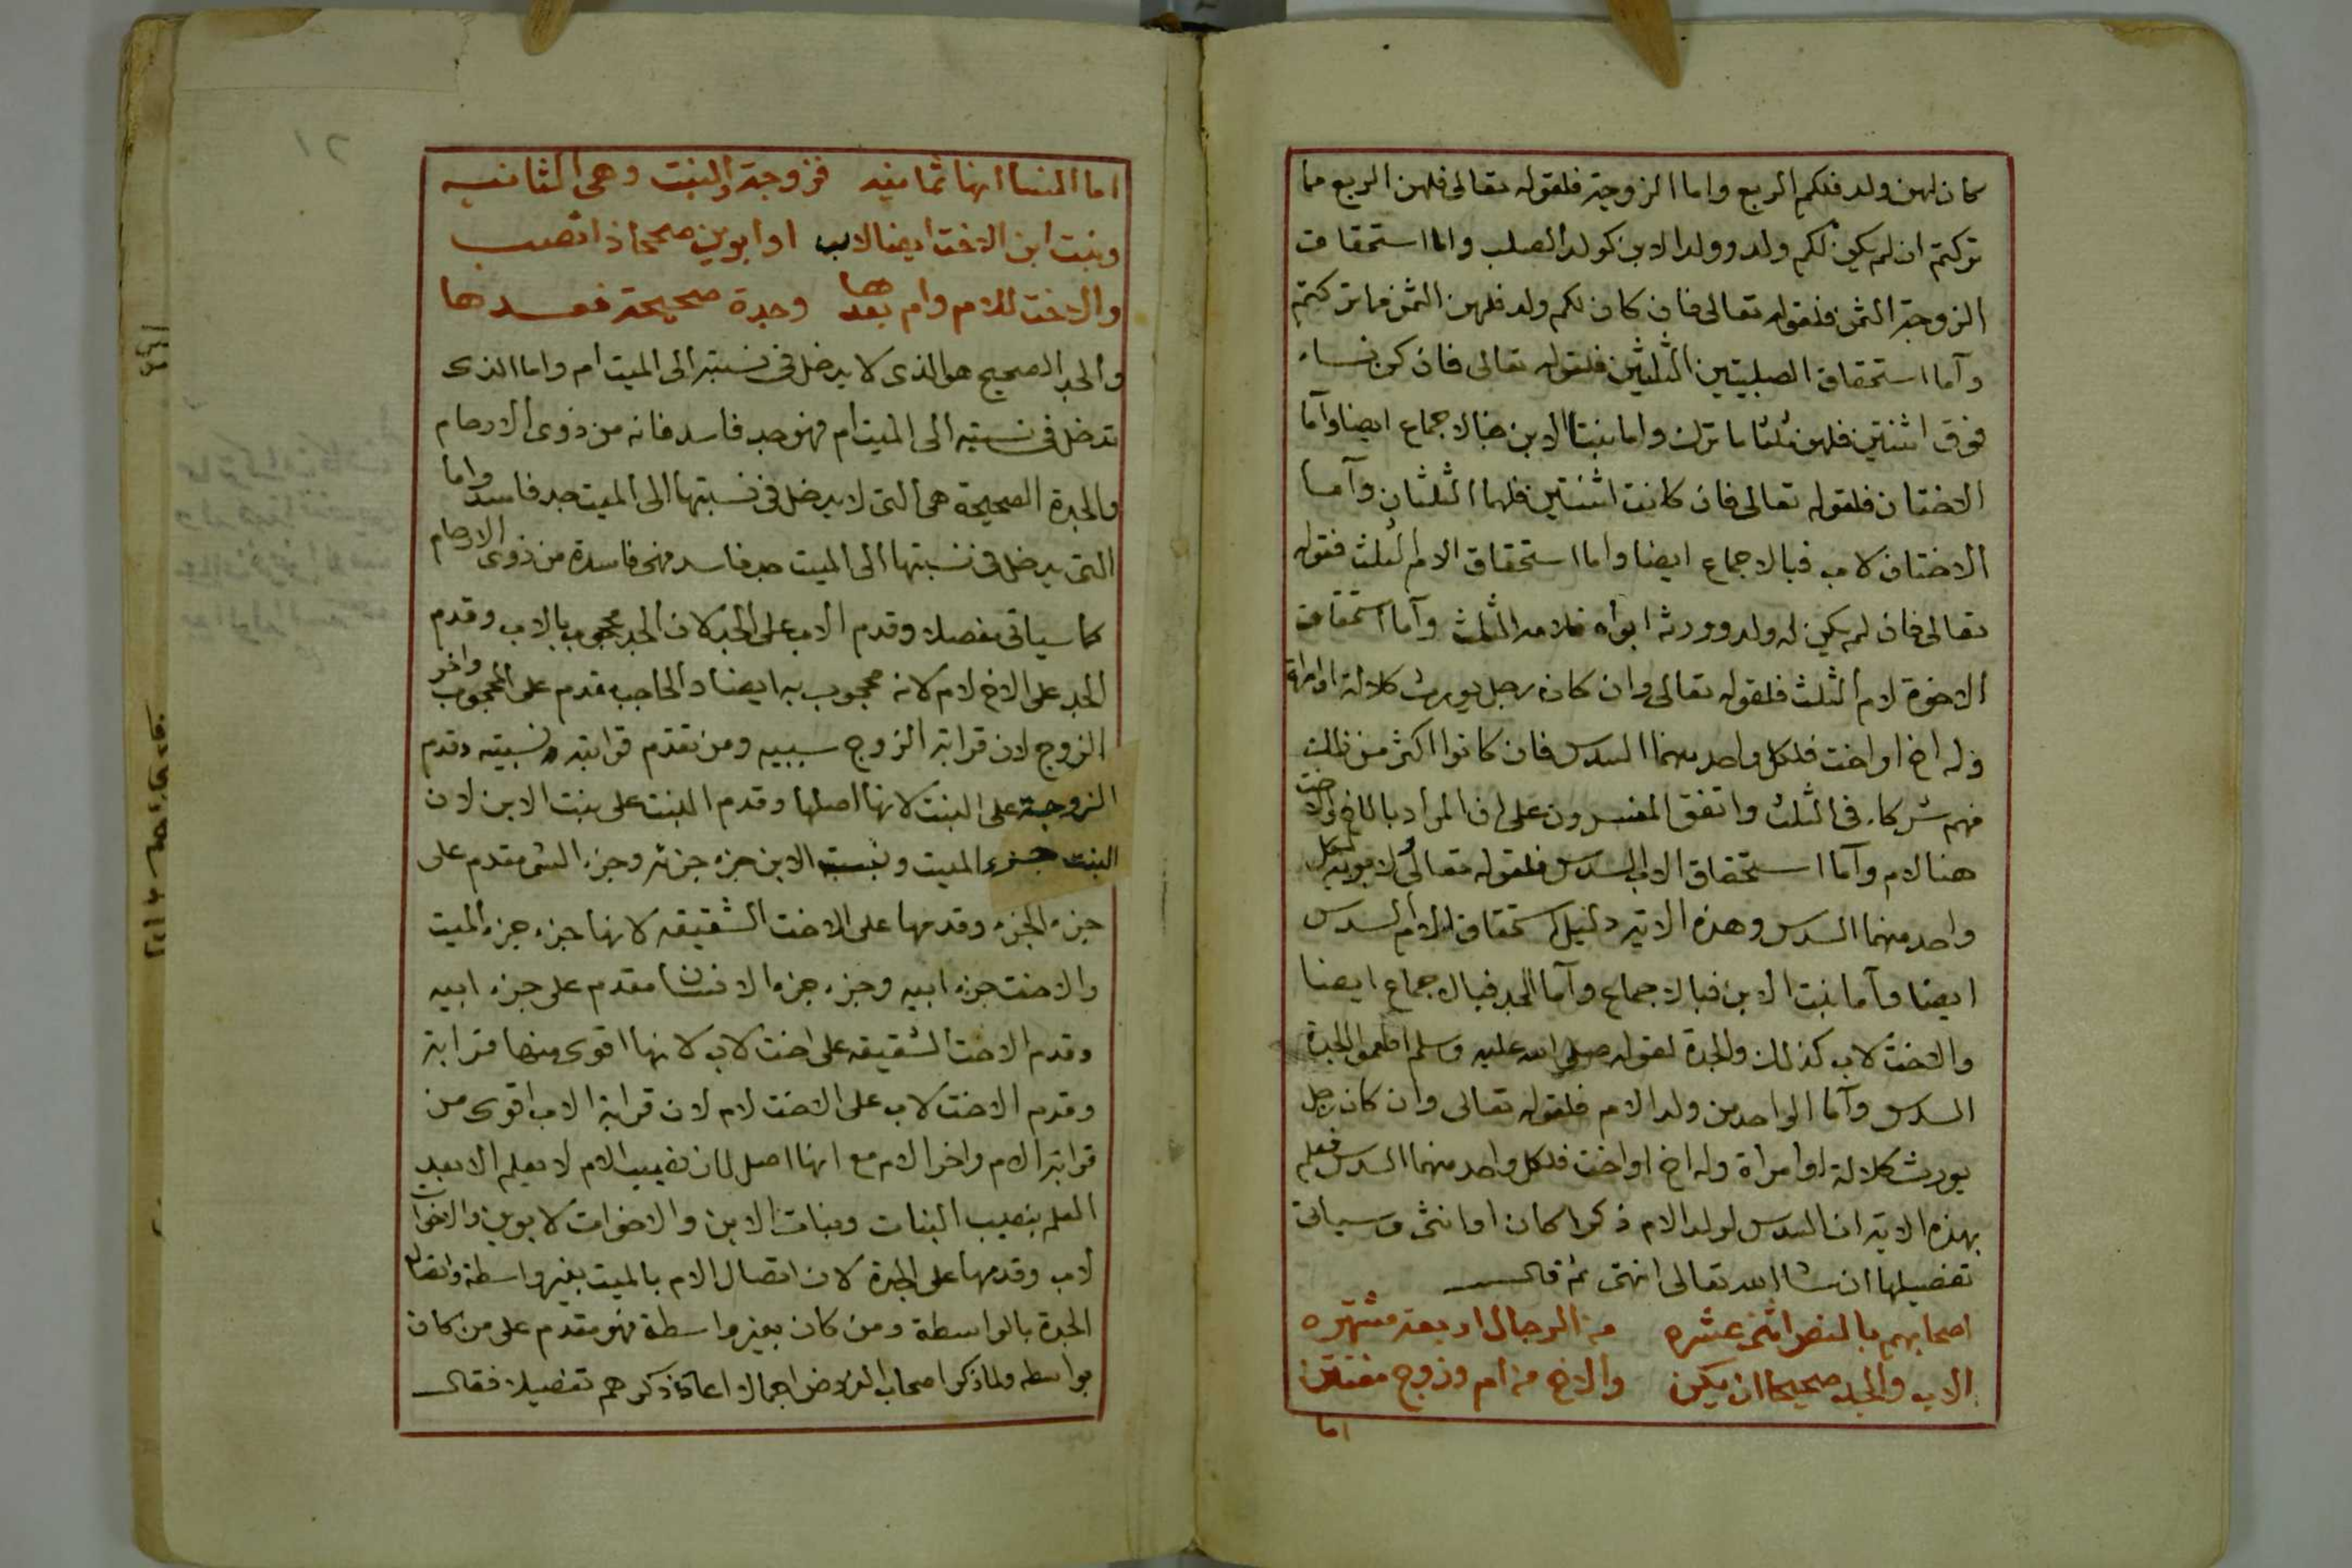 كان لهن ولد فلكم الربع واما الزوجة فلقوله تعالى فلهن الربع مما
تركتم ان لم يكن لكم ولد وولد الابن كولد الصلب واما استحقاق
الزوجة الثمن فلقوله تعالى فان كان لكم ولد فلهن الثمن مما تركتم
وآما استحقاق الصلبيتين الثلثين فلقوله تعالى فان كن نساء
فوق اثنتين فلهن ثلثا ما ترك واما بنتا الابن فبالاجماع ايضا وآما
الاختان فلقوله تعالى فان كانت اثنتين فلهما الثلثان وآما
الاختان لاب فبالاجماع ايضا واما استحقاق الام الثلث فقوله
تعالى فان لم يكن له ولد وورثه ابواه فلامه الثلث وآما استحقاق
الاخوة لام الثلث فلقوله تعالى وان كان رجل يورث كلالة او امراة
وله اخ او اخت فلكل واحد منهما السدس فان كانوا اكثر من ذلك
فهم شركاء في الثلث واتفق المفسرون على ان المراد بالاخ والاخت
هنا لام وآما استحقاق الاب السدس فلقوله تعالى لابويه لكل
واحد منهما السدس وهذه الاية دليل استحقاق الام السدس
ايضا وآما بنت الابن فبالاجماع وآما الجد فبالاجماع ايضا
والاخت لاب كذلك والجدة لقوله صلى الله عليه وسلم اطعموا الجدة
السدس وآما الواحد من ولد الام فلقوله تعالى وان كان رجل
يورث كلالة او امراة وله اخ او اخت فلكل واحد منهما السدس فعلم
بهذه الاية ان السدس لولد الام ذكرا كان او انثى وسياتي
تفصيلها ان شا الله تعالى انتهى ثم قال
اصحابهم بالنص اثنى عشره من الرجال اربعة مشتهره
الاب والجد صحيحا ان يكن والاخ من ام وزوج
اما
اما النسا انها ثمانيه فزوجة والبنت وهي الثانيه
وبنت ابن الاخت ايضا لاب او ابوين صححا ذا تصب
والاخت للام وام بعدها وجدة صحيحة فعدها
والجد الصحيح هو الذى لا يدخل في نسبته الى الميت أم واما الذى
تدخل في نسبته الى الميت ام فهو جد فاسد فانه من ذوى الارحام
والجدة الصحيحة هي التى لا يدخل في نسبتها الى الميت جد فاسد واما
التى يدخل في نسبتها الى الميت جد فاسد فهى فاسدة من ذوى الارحام
كما سياتى مفصلا وقدم الاب على الجد لان الجد محجوب بالاب وقدم
الجد على الاخ لام لانه محجوب به ايضا والحاجب مقدم على المحجوب واخر
الزوج لان قرابة الزوج سببيه ومن تقدم قرابته نسبيته وقدم
الزوجة على البنت لانها اصلها وقدم البنت على بنت الابن لان
البنت جزء الميت وبنت الابن جزء جزئه وجزء الشى مقدم على
جزء الجزء وقدمها على الاخت الشقيقه لانها جزء جزء الميت
والاخت جزء ابيه وجزء جزء الانسان مقدم على جزء ابيه
وقدم الاخت الشقيقه على اخت لاب لانها اقوى منها قرابة
وقدم الاخت لاب على الاخت لام لان قرابة الاب اقوى من
قرابة الام واخر الام مع انها اصل لان نصيب الام لا يعلم الا بعد
العلم بنصيب البنات وبنات الابن والاخوات لابوين والاخوات
لاب وقدمها على الجدة لان اتصال الام بالميت بغير واسطة واتصال
الجدة بالواسطة ومن كان بغير واسطة فهو مقدم على من كان
بواسطه ولما ذكر اصحاب الفروض اجمالا اعاد ذكرهم تفصيلا فقال